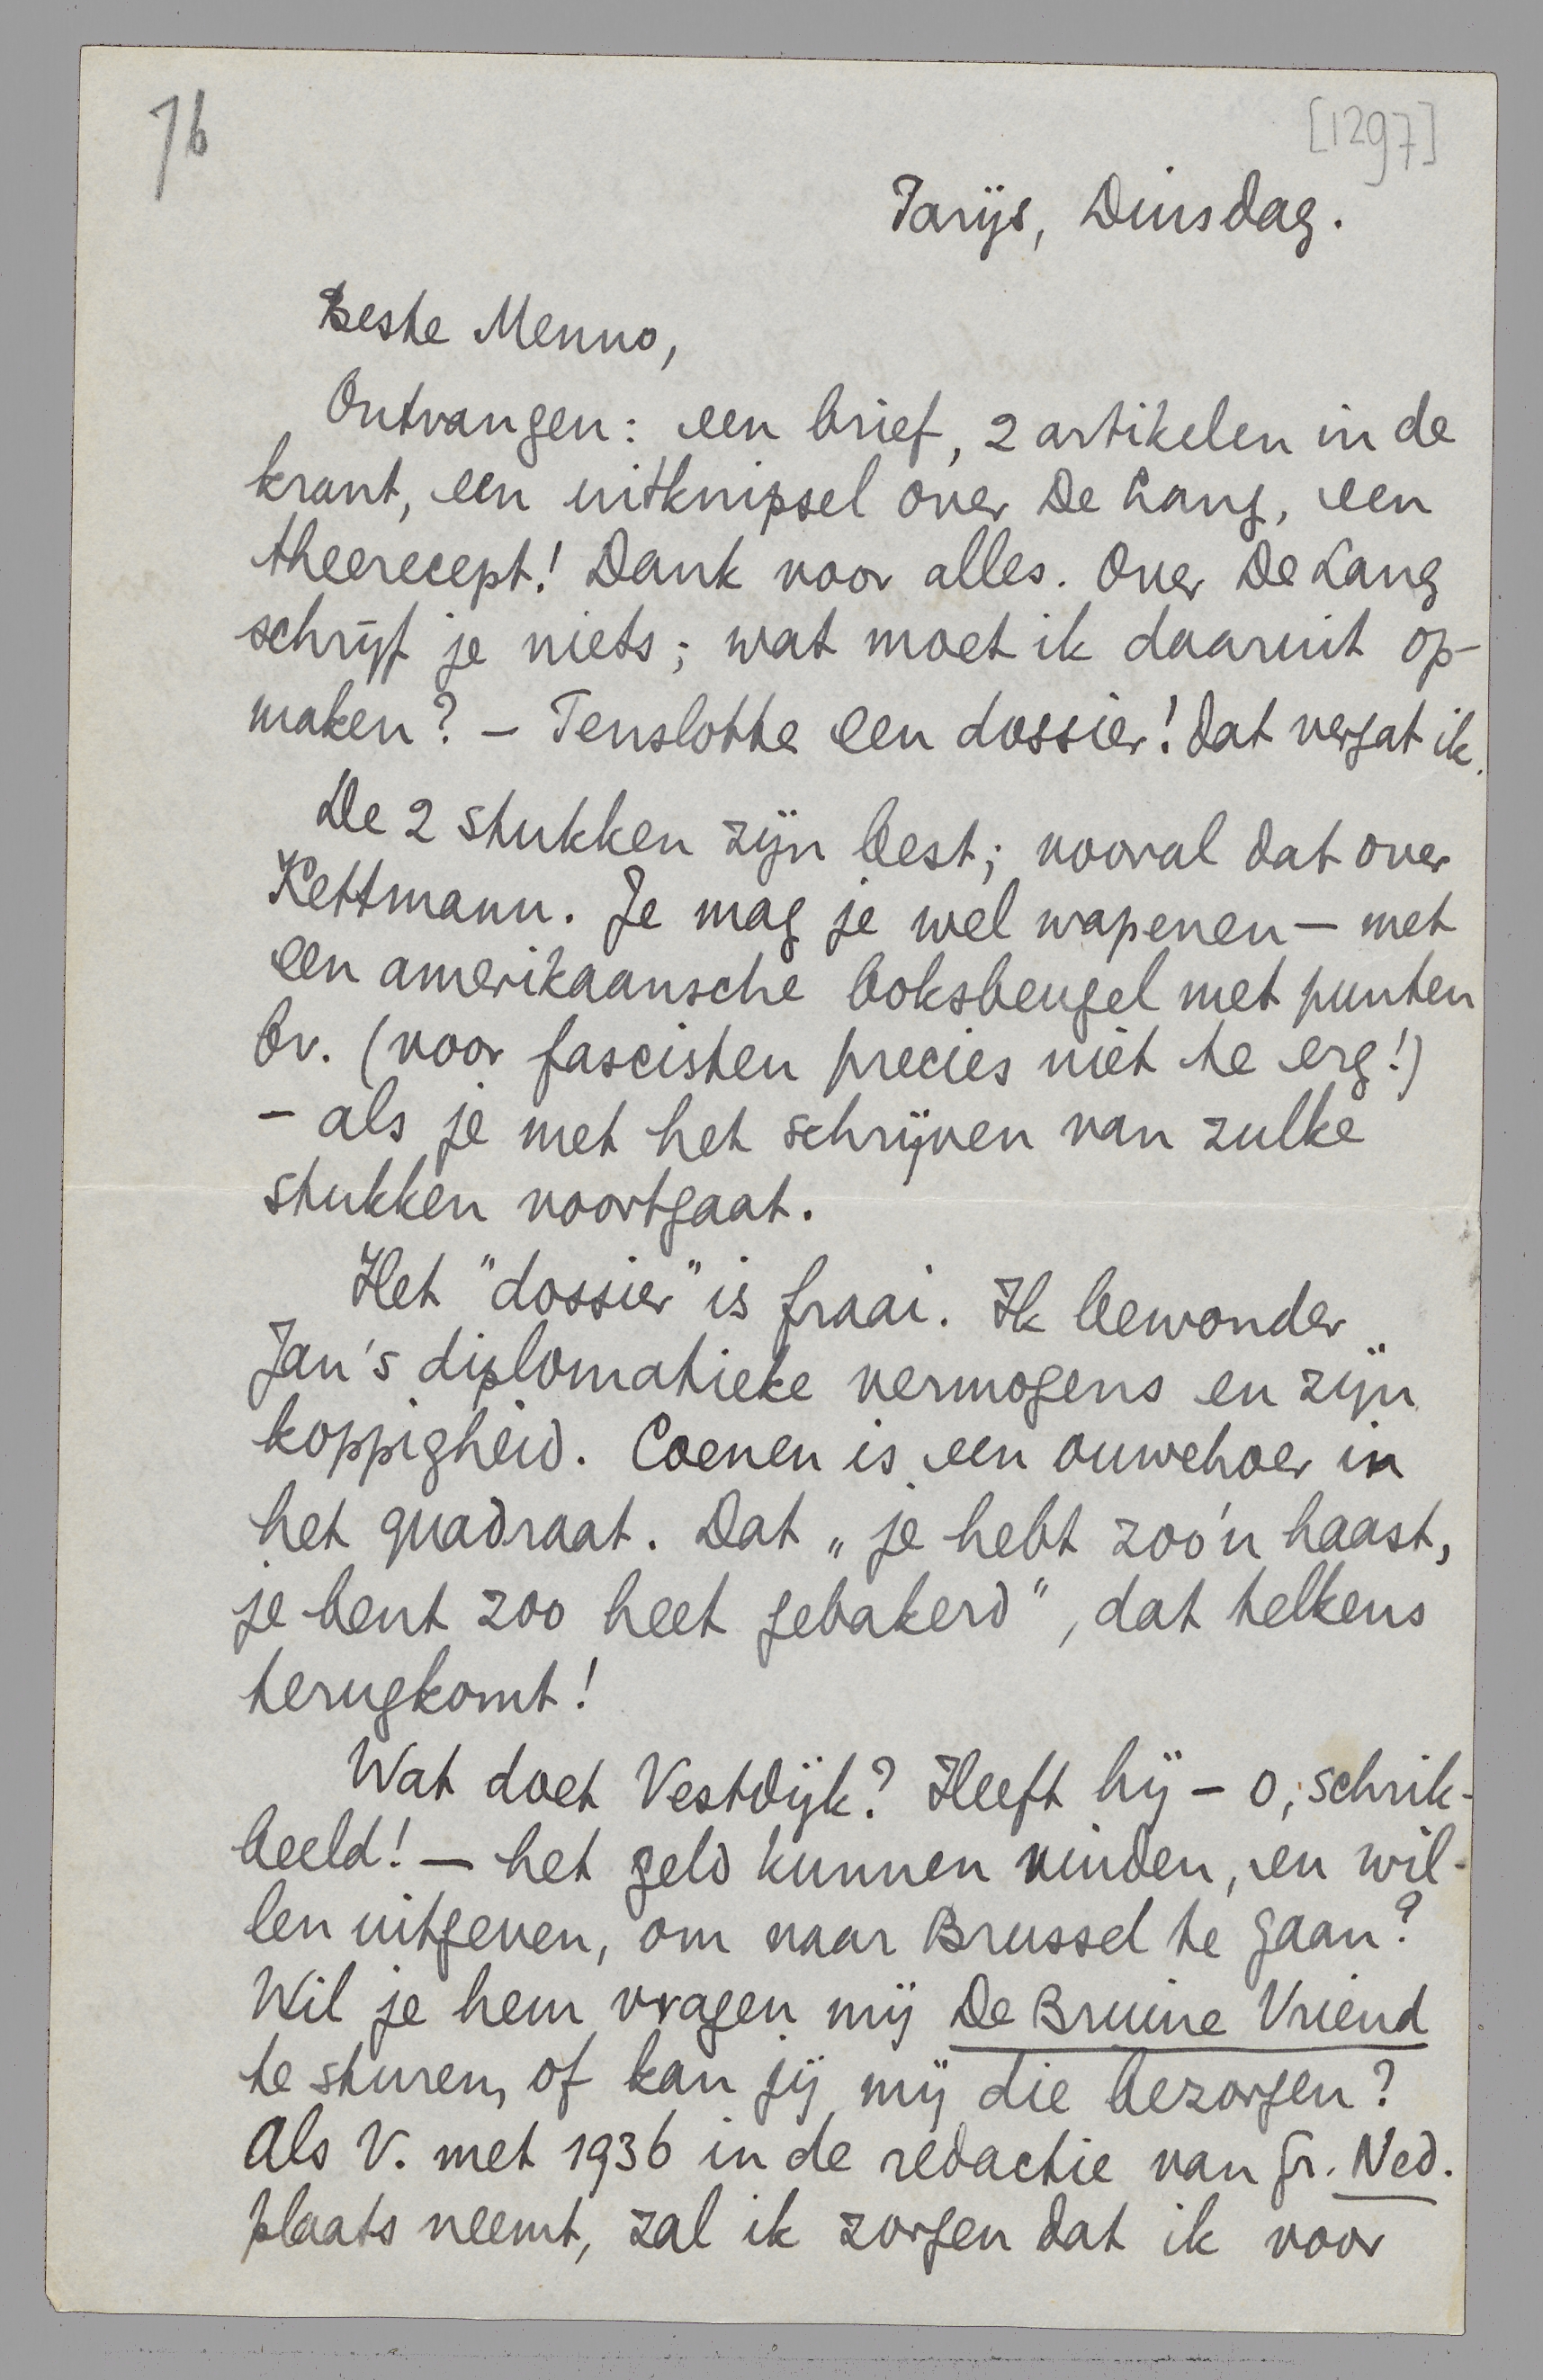 76
[1297]
Parijs, Dinsdag.
Beste Menno,
Ontvangen: een brief, 2 artikelen in de
krant, een uitknipsel over De Lang, een
theerecept! Dank voor alles. Over De Lang
schrijf je niets; wat moet ik daaruit op-
maken? – Tenslotte een dossier! Dat vergat ik.
De 2 stukken zijn best; vooral dat over
Kettmann. Je mag je wel wapenen – met
een amerikaansche boksbeugel met punten
bv. (voor fascisten precies niet te erg!)
– als je met het schrijven van zulke
stukken voortgaat.
Het "dossier" is fraai. Ik bewonder
Jan's diplomatieke vermogens en zijn
koppigheid. Coenen is een ouwehoer in
het quadraat. Dat „je hebt zoo'n haast,
je bent zoo heet gebakerd", dat telkens
terugkomt!
Wat doet Vestdijk? Heeft hij – o, schrik-
beeld! – het geld kunnen vinden, en wil-
len uitgeven, om naar Brussel te gaan?
Wil je hem vragen mij De Bruine Vriend
te sturen, of kan jij mij die bezorgen?
Als V. met 1936 in de redactie van Gr. Ned.
plaats neemt, zal ik zorgen dat ik voor